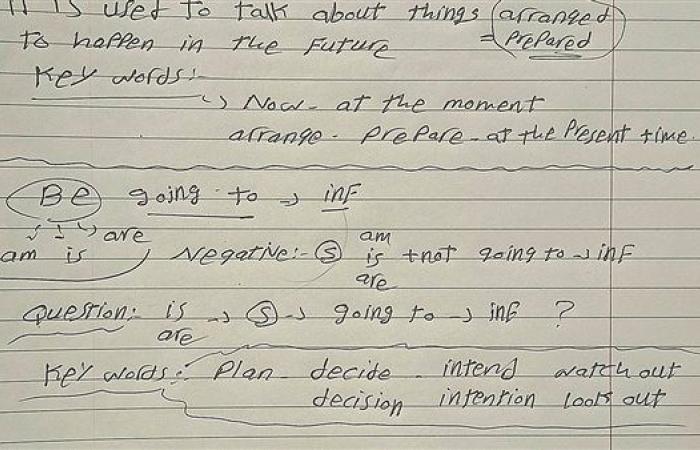 It is used to talk about things (arranged
to happen in the Future = prepared)
Key words:-
↳ Now - at the moment
arrange - prepare - at the present time.
Be going to → inf
am is are
Negative:- (S) am is are + not going to → inf
Question:- is are → (S) → going to → inf ?
Key words:- Plan - decide - intend watch out
decision intention look out